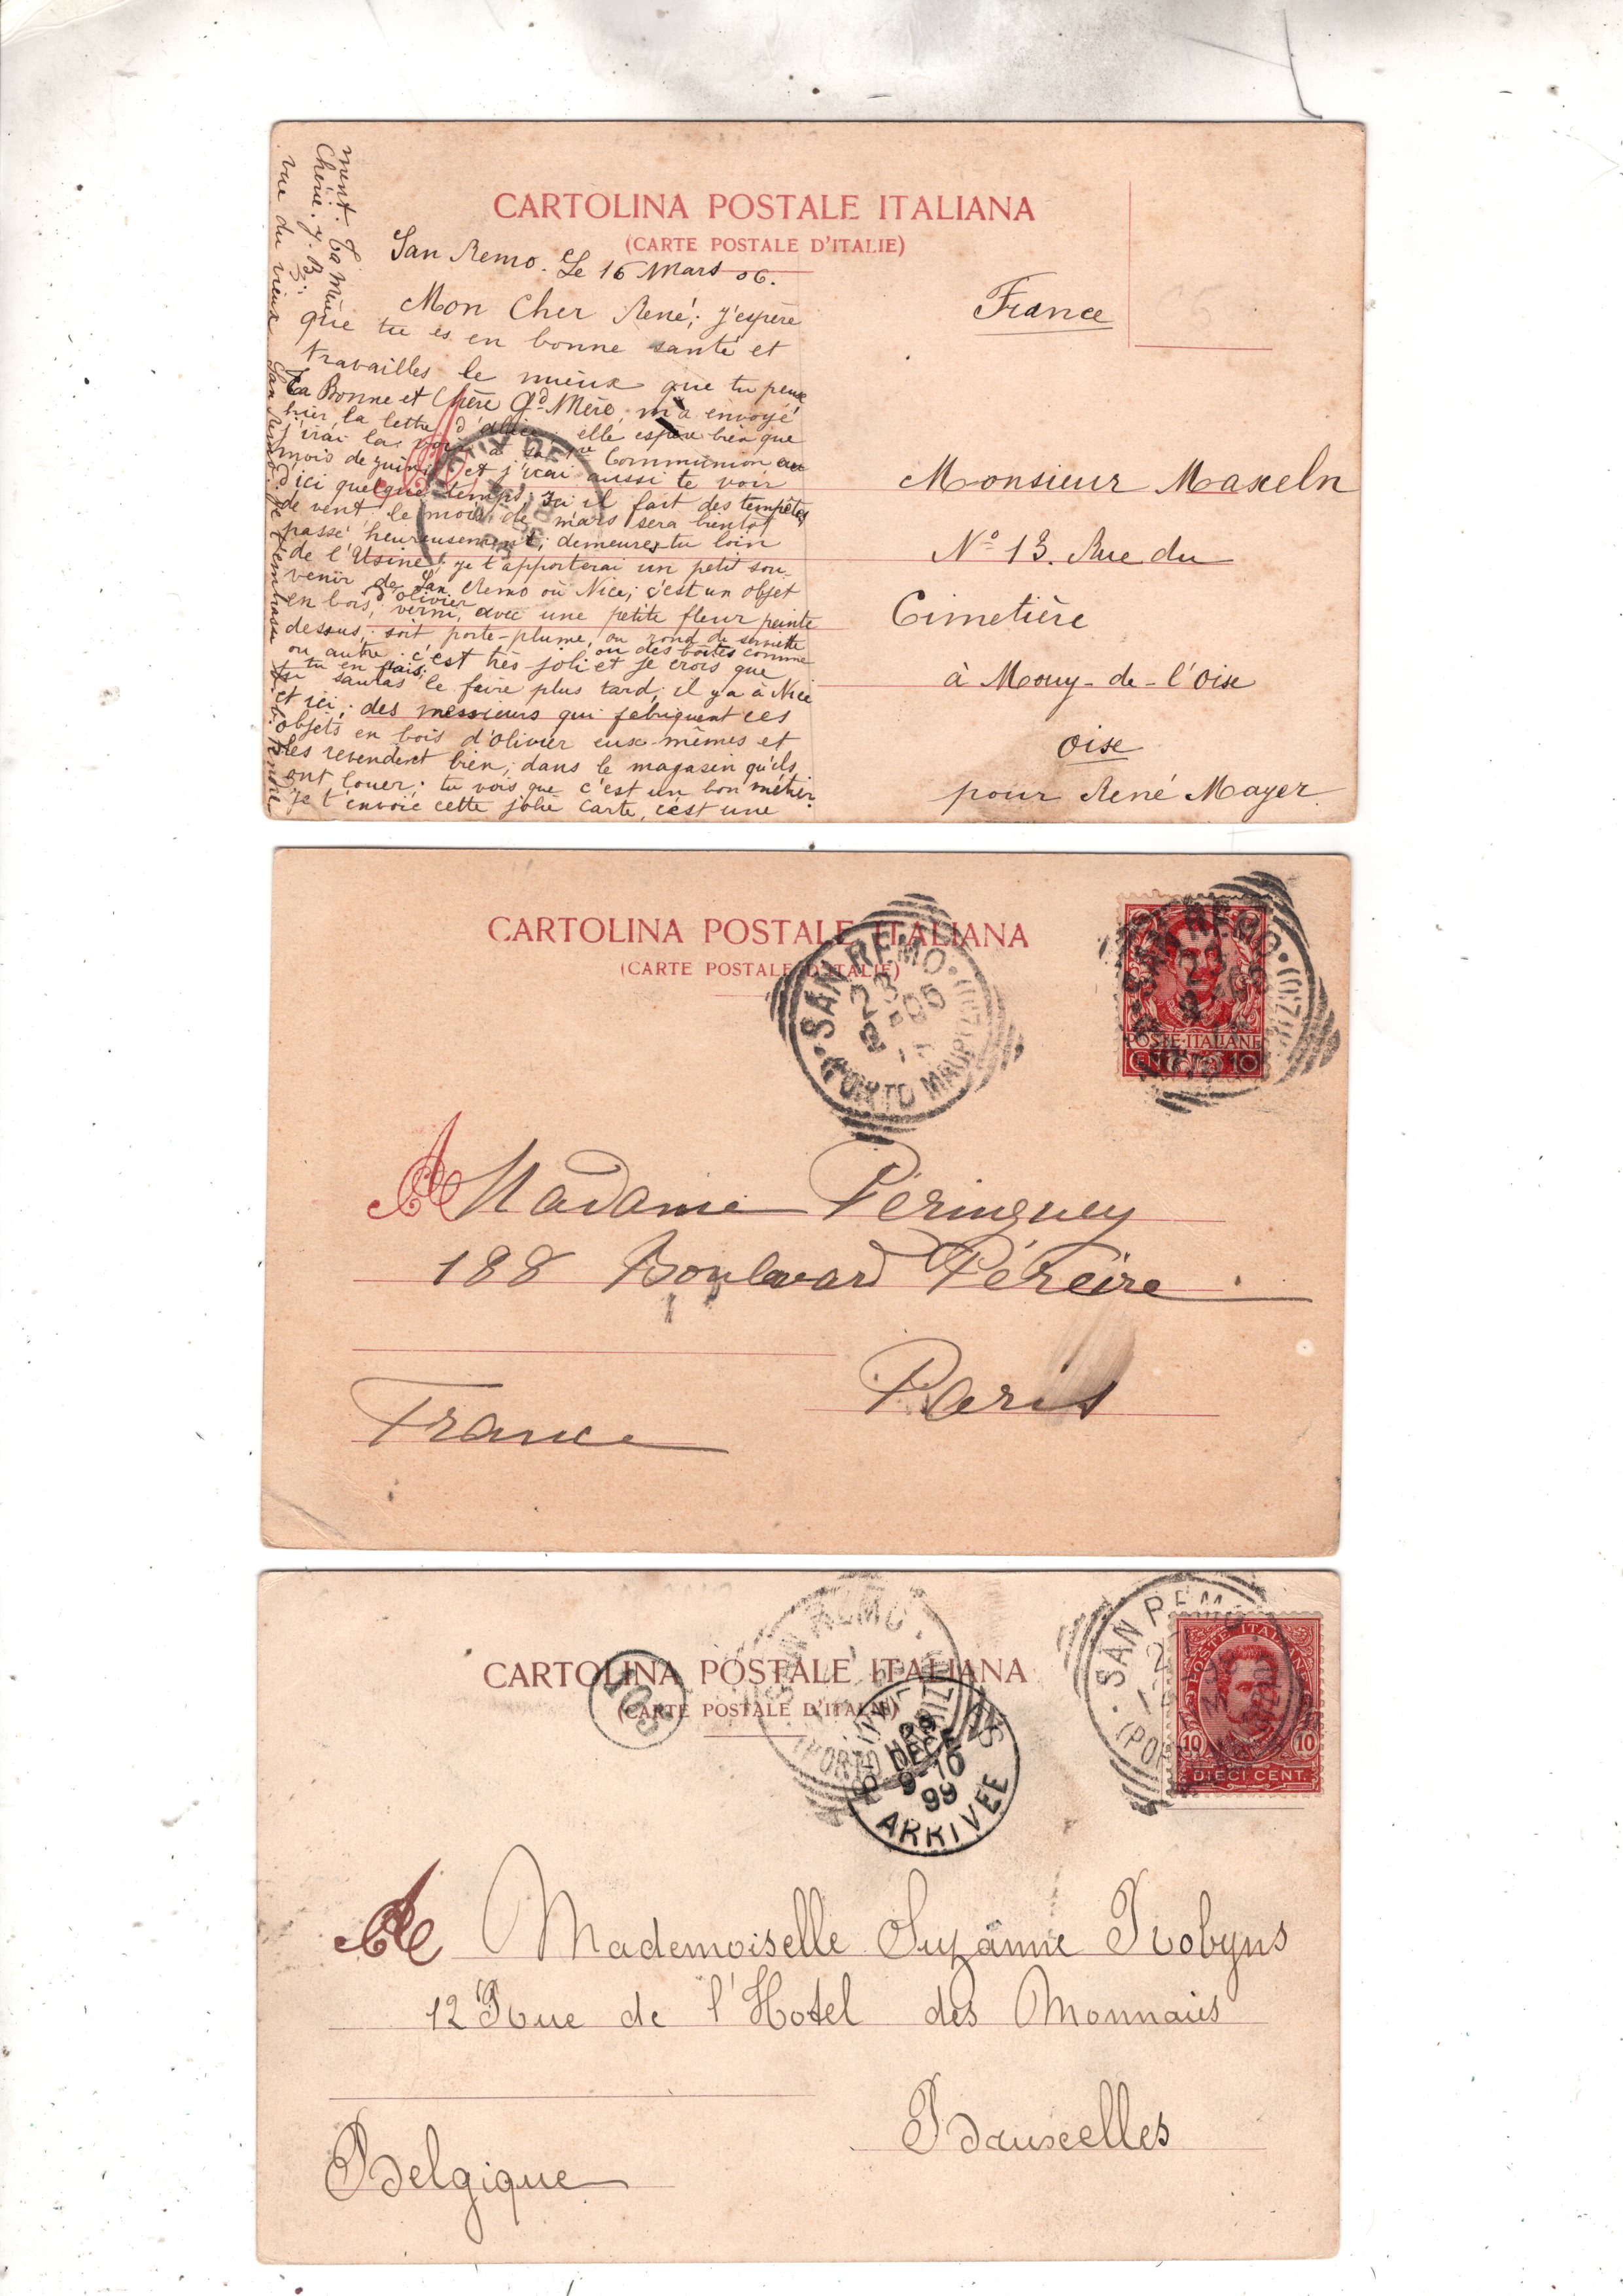 CARTOLINA POSTALE ITALIANA
(CARTE POSTALE D'ITALIE)
San Remo. Le 16 Mars 06.
Mon Cher René; j'espère
que tu es en bonne santé et
travailles le mieux que tu peux
ta Bonne et Chère Gd Mère, m'a envoyé
hier, la lettre elle espère bien que
j'irai la voir à sa 1re Communion au
mois de juin, et j'irai aussi te voir
d'ici quelque temps, ici il fait des tempêtes
de vent le mois de mars sera bientôt
passé heureusement; demeures-tu loin
de l'Usine; je t'apporterai un petit sou-
venir de San Remo où Nice; c'est un objet
en bois, d'olivier verni, avec une petite fleur peinte
dessus, soit porte-plume, ou rond de serviette
ou autre ou des boîtes comme
tu en fais; c'est très joli et je crois que
tu sauras le faire plus tard; il y a à Nice
et ici; des messieurs qui fabriquent ces
objets en bois d'olivier eux-mêmes et
les revendent bien; dans le magasin qu'ils
ont louer; tu vois que c'est un bon métier
je t'envoie cette jolie carte, c'est une
vue du vieux San Remo; je t'embrasse
ment. Ta Mère
Chérie. J. B.
France
Monsieur Maxeln
No 13. Rue du
Cimetière
à Mouy-de-l'Oise
Oise
pour René Mayer
CARTOLINA POSTALE ITALIANA
(CARTE POSTALE D'ITALIE)
SAN REMO
(PORTO MAURIZIO)
POSTE·ITALIANE
10
A Madame Péringuey
188 Boulevard Péreire
Paris
France
CARTOLINA POSTALE ITALIANA
(CARTE POSTALE D'ITALIE)
SAN REMO
POSTE ITALIANE
10 10
DIECI CENT.
DECE
9-10
99
ARRIVEE
A Mademoiselle Suzanne Robyns
12 Rue de l'Hotel des Monnaies
Bruxelles
Belgique